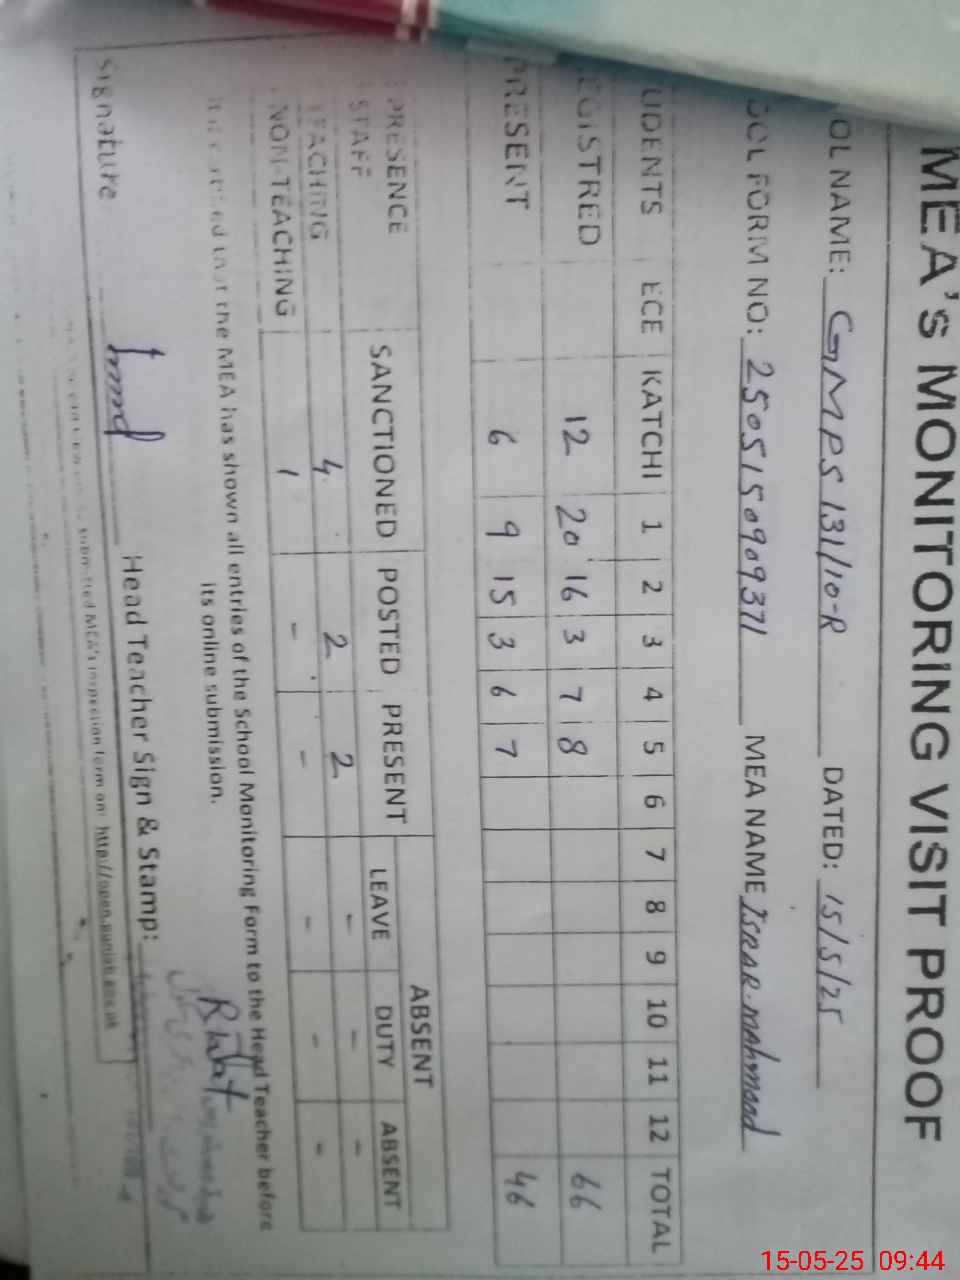 MEA's MONITORING VISIT PROOF
OOL NAME: GMPS 131/10-R DATED: 15/5/25
OOL FORM NO: 2505150909371 MEA NAME ISRAR. MAHMOOD
UDENTS ECE KATCHI 1 2 3 4 5 6 7 8 9 10 11 12 TOTAL
EGISTRED 12 20 16 3 7 8 66
PRESENT 6 9 15 3 6 7 46
ABSENT
PRESENCE SANCTIONED POSTED PRESENT LEAVE DUTY ABSENT
STAFF
EACHING 4 2 2 - - -
NON-TEACHING 1 - - - - -
the MEA has shown all entries of the School Monitoring Form to the Head Teacher before
its online submission.
Signature Head Teacher Sign & Stamp:
submitted MEA's inspection form on: http://open.punjab.gov.pk
15-05-25 09:44